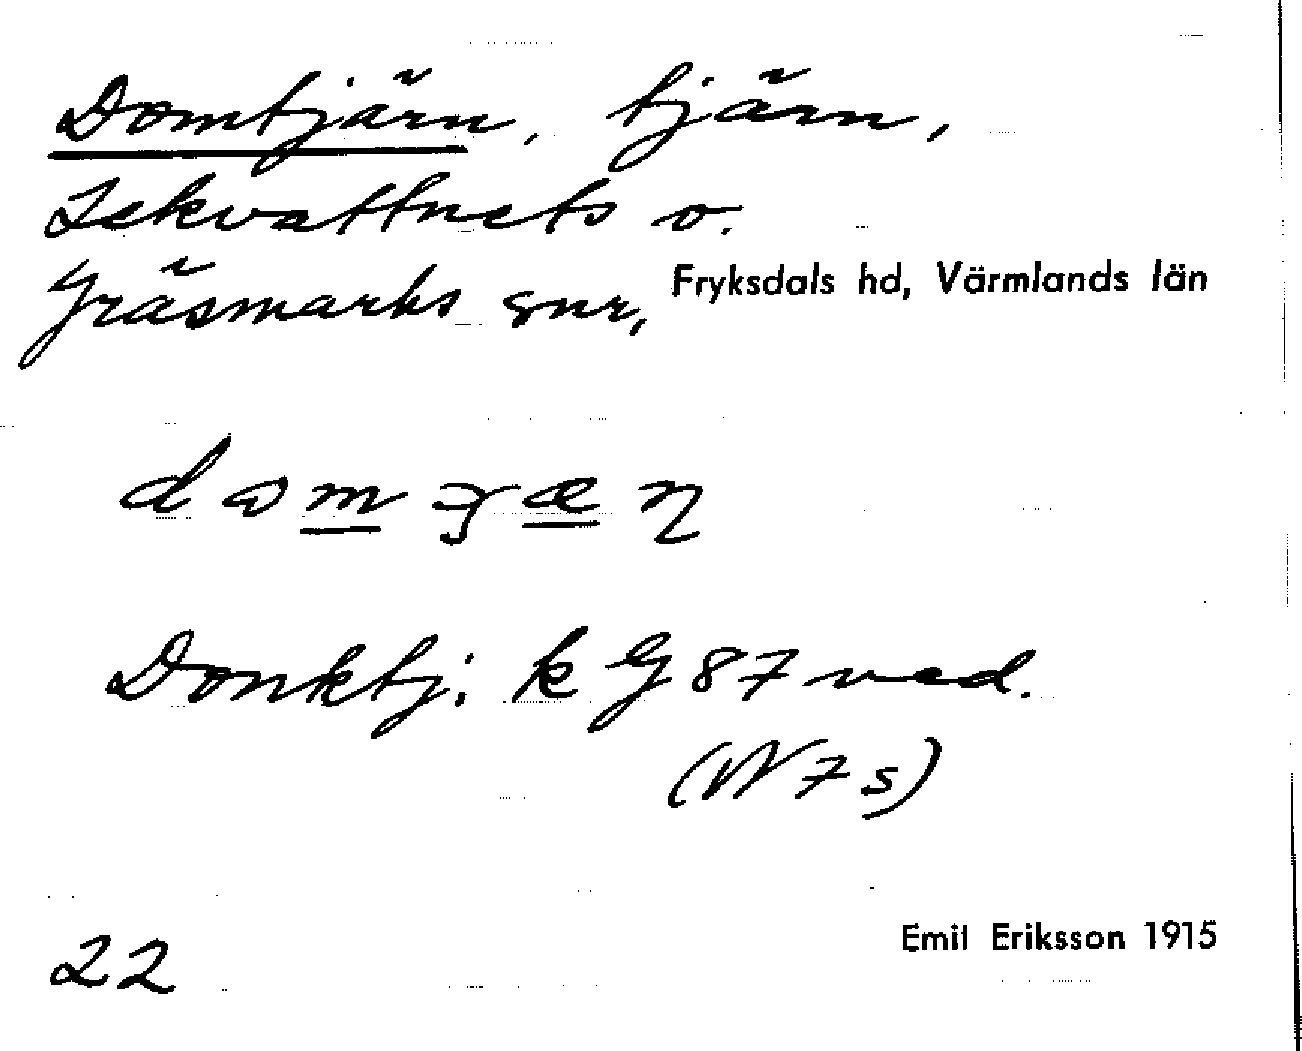 Domtjärn, tjärn,
Lekvattnets o.
Gräsmarks snr, Fryksdals hd, Värmlands län
Donktj: k G 87 ved.
(W 7 s)
22 Emil Eriksson 1915